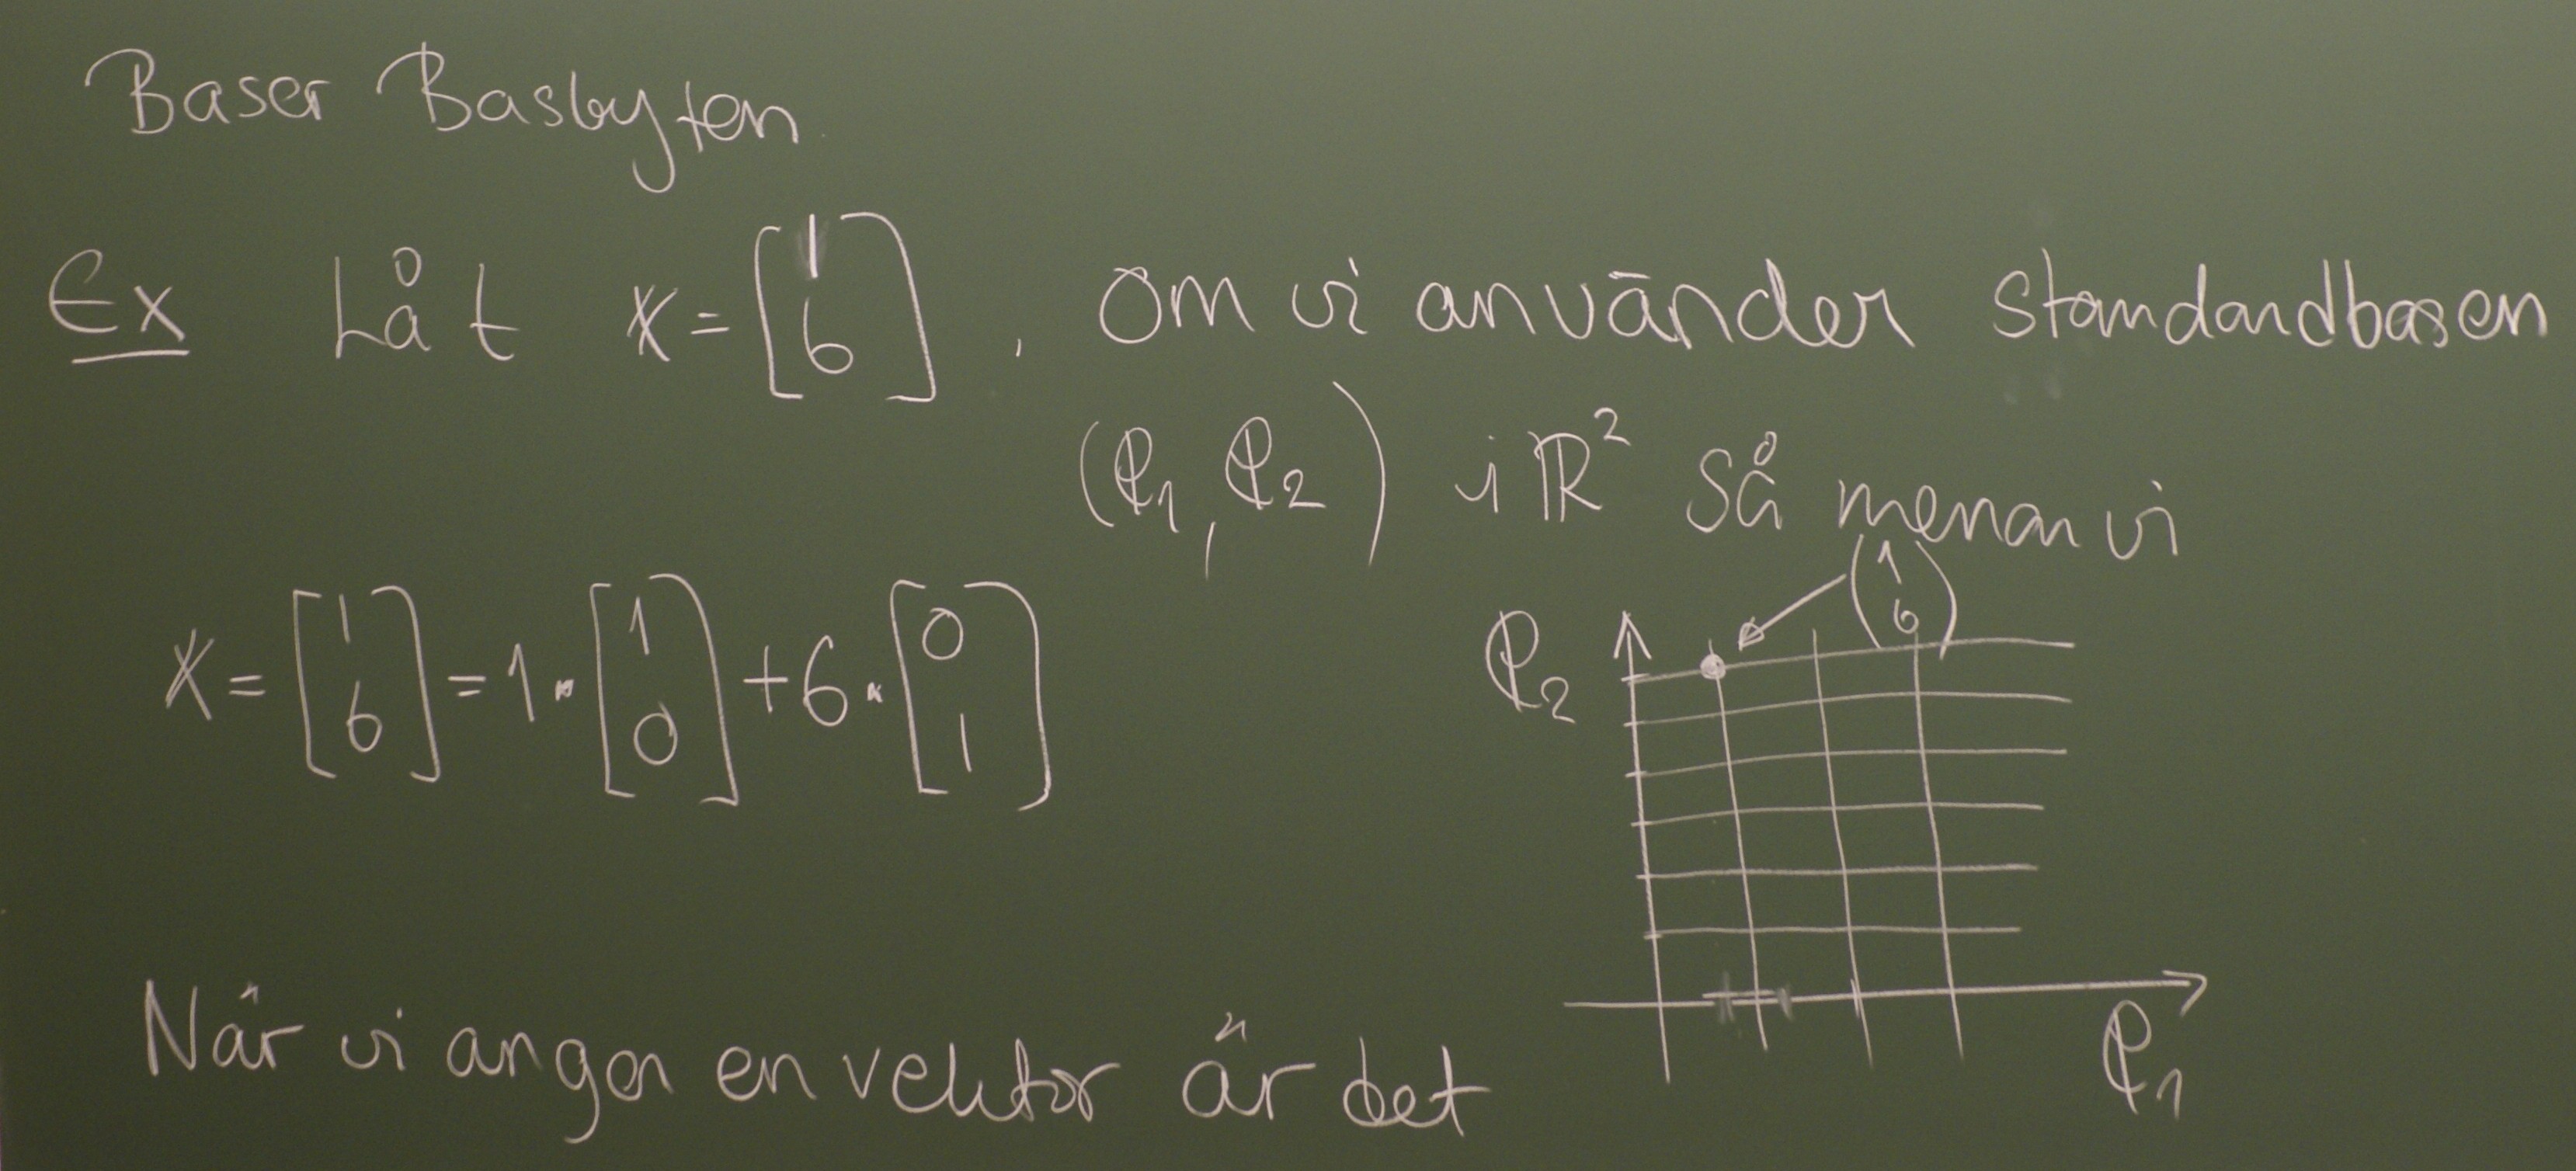 Baser Basbyten.
Ex Låt 𝕏 = [1 6], om vi använder standardbasen
(𝕖₁, 𝕖₂) i ℝ² så menar vi
𝕏 = [1 6] = 1·[1 0] + 6·[0 1]
(1 6)
𝕖₂
𝕖₁
När vi anger en vektor är det